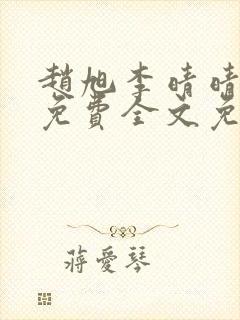 趙旭李晴晴
免費全文免
蔣愛琴